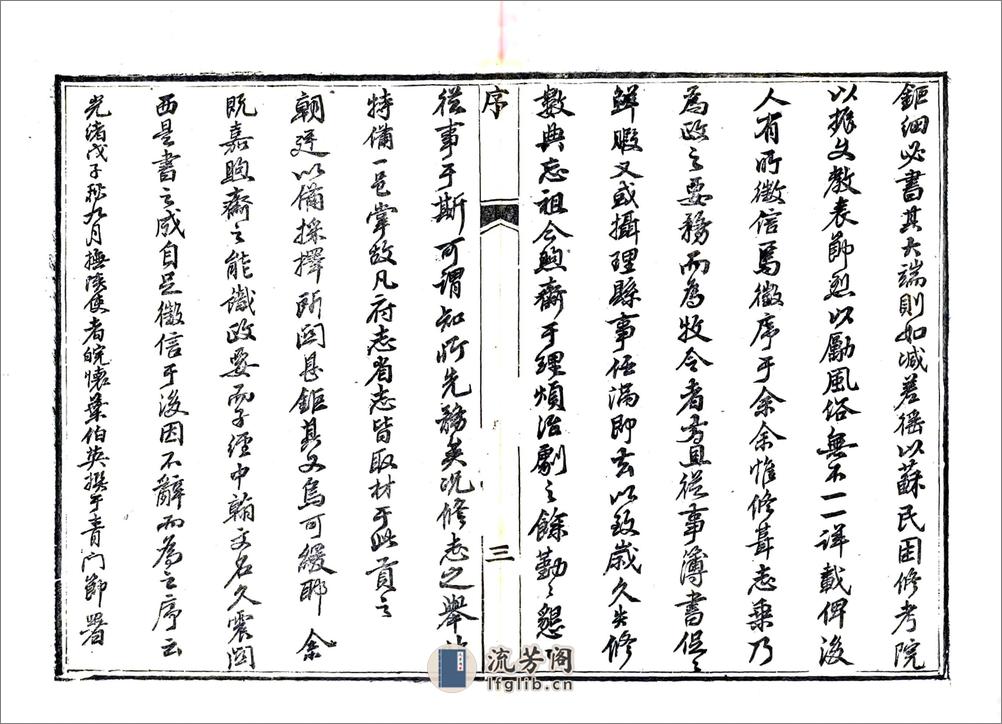 鉅細必書其大端則如減差徭以蘇民困修考院
以振文教表節烈以勵風俗無不一一詳載俾後
人有所徵信焉徵序于余余惟修葺志乘乃
為政之要務而為牧令者率皆從事簿書促之
鮮暇又或攝理縣事任滿即去以致歲久失修
數典忘祖今煦齋于理煩治劇之餘勤之懇
序
三
從事于斯可謂知所先務矣况修志之舉
特備一邑掌故凡府志省志皆取材于此貢之
朝廷以備採擇所関甚鉅其又烏可緩耶余
既嘉煦齋之能識政要而子經中翰文名久震関
西是書之成自足徵信于後因不辭而為之序云
光緒戊子秋九月撫陝使者皖懷葉伯英撰于青门節署
流芳阁
lfglib.cn